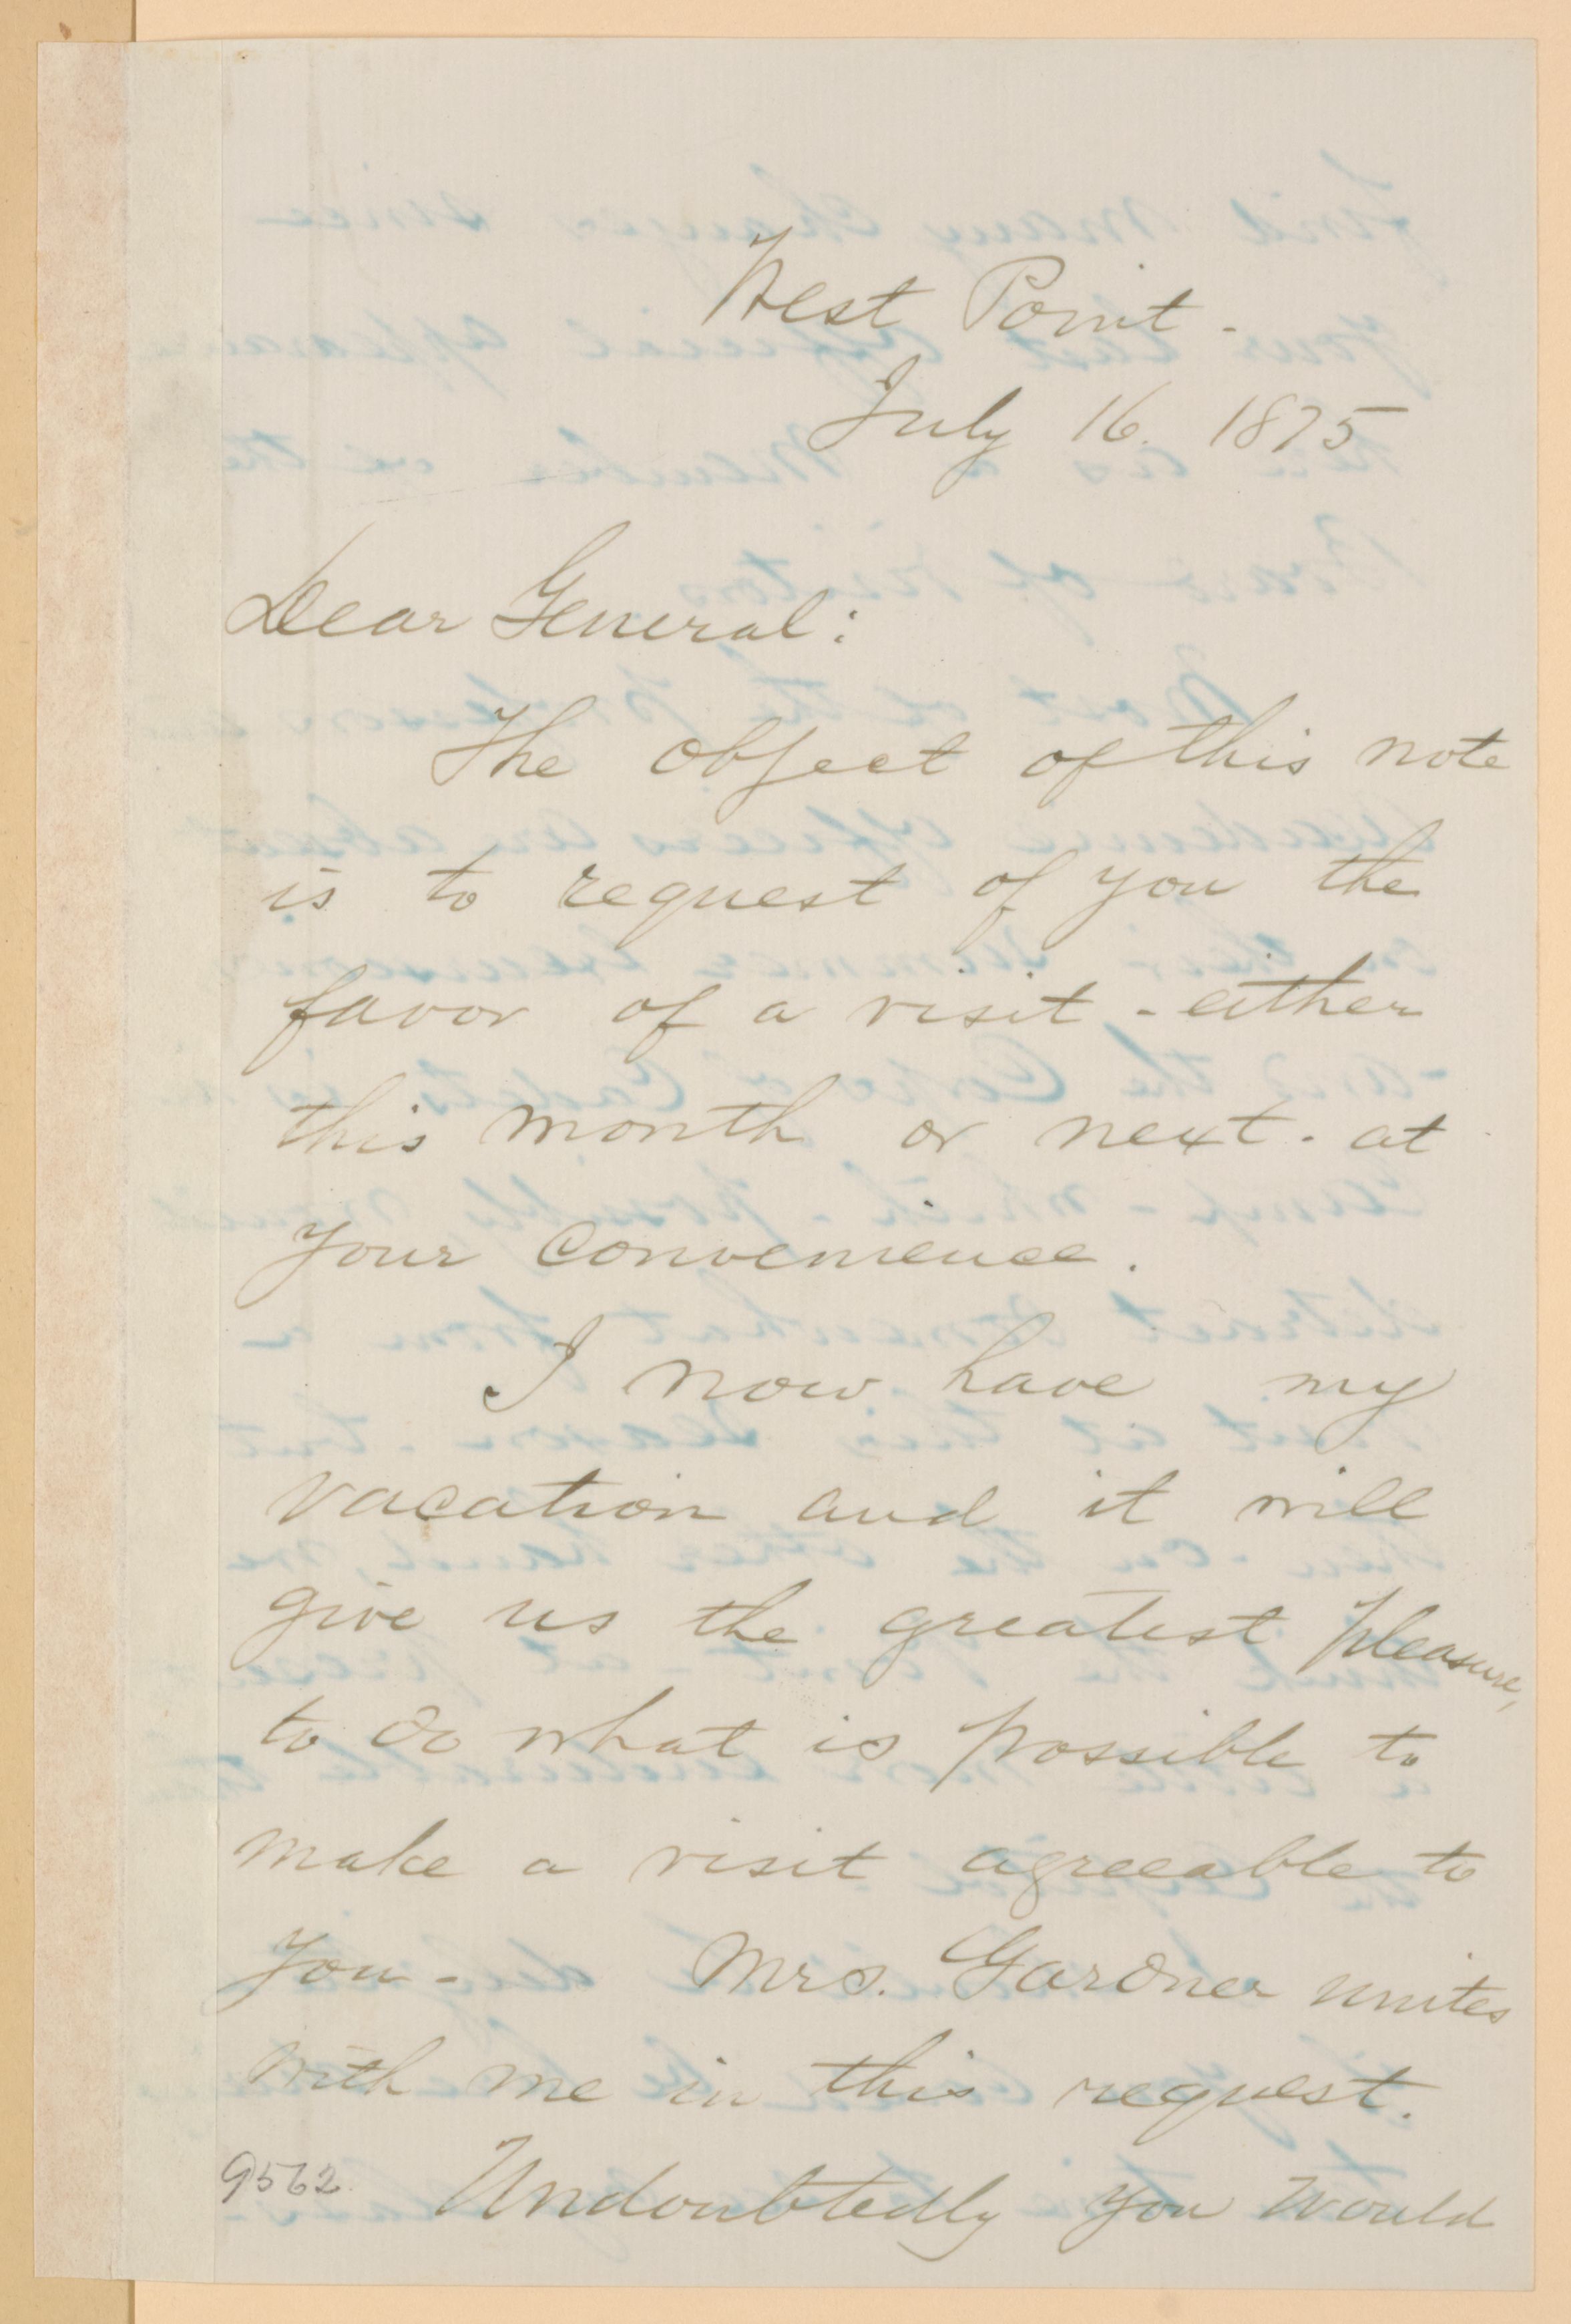 West Point.
July 16. 1875
Dear General:
The object of this note
is to request of you the
favor of a visit - either
this month or next. at
your convenience.
I now have my
vacation and it will
give us the greatest pleasure,
to do what is possible to
make a visit agreeable to
you - Mrs. Gardner unites
with me in this request.
9562 Undoubtedly you would